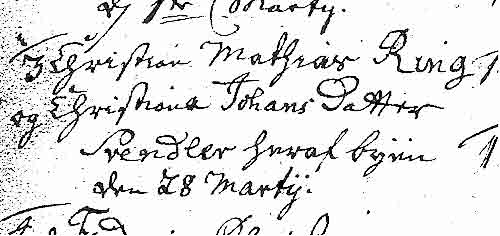 d 1ste Marty.
Christian Mathias Ring
og Christiana Johans Datter
Svendler heraf byen
den 28 Martij.